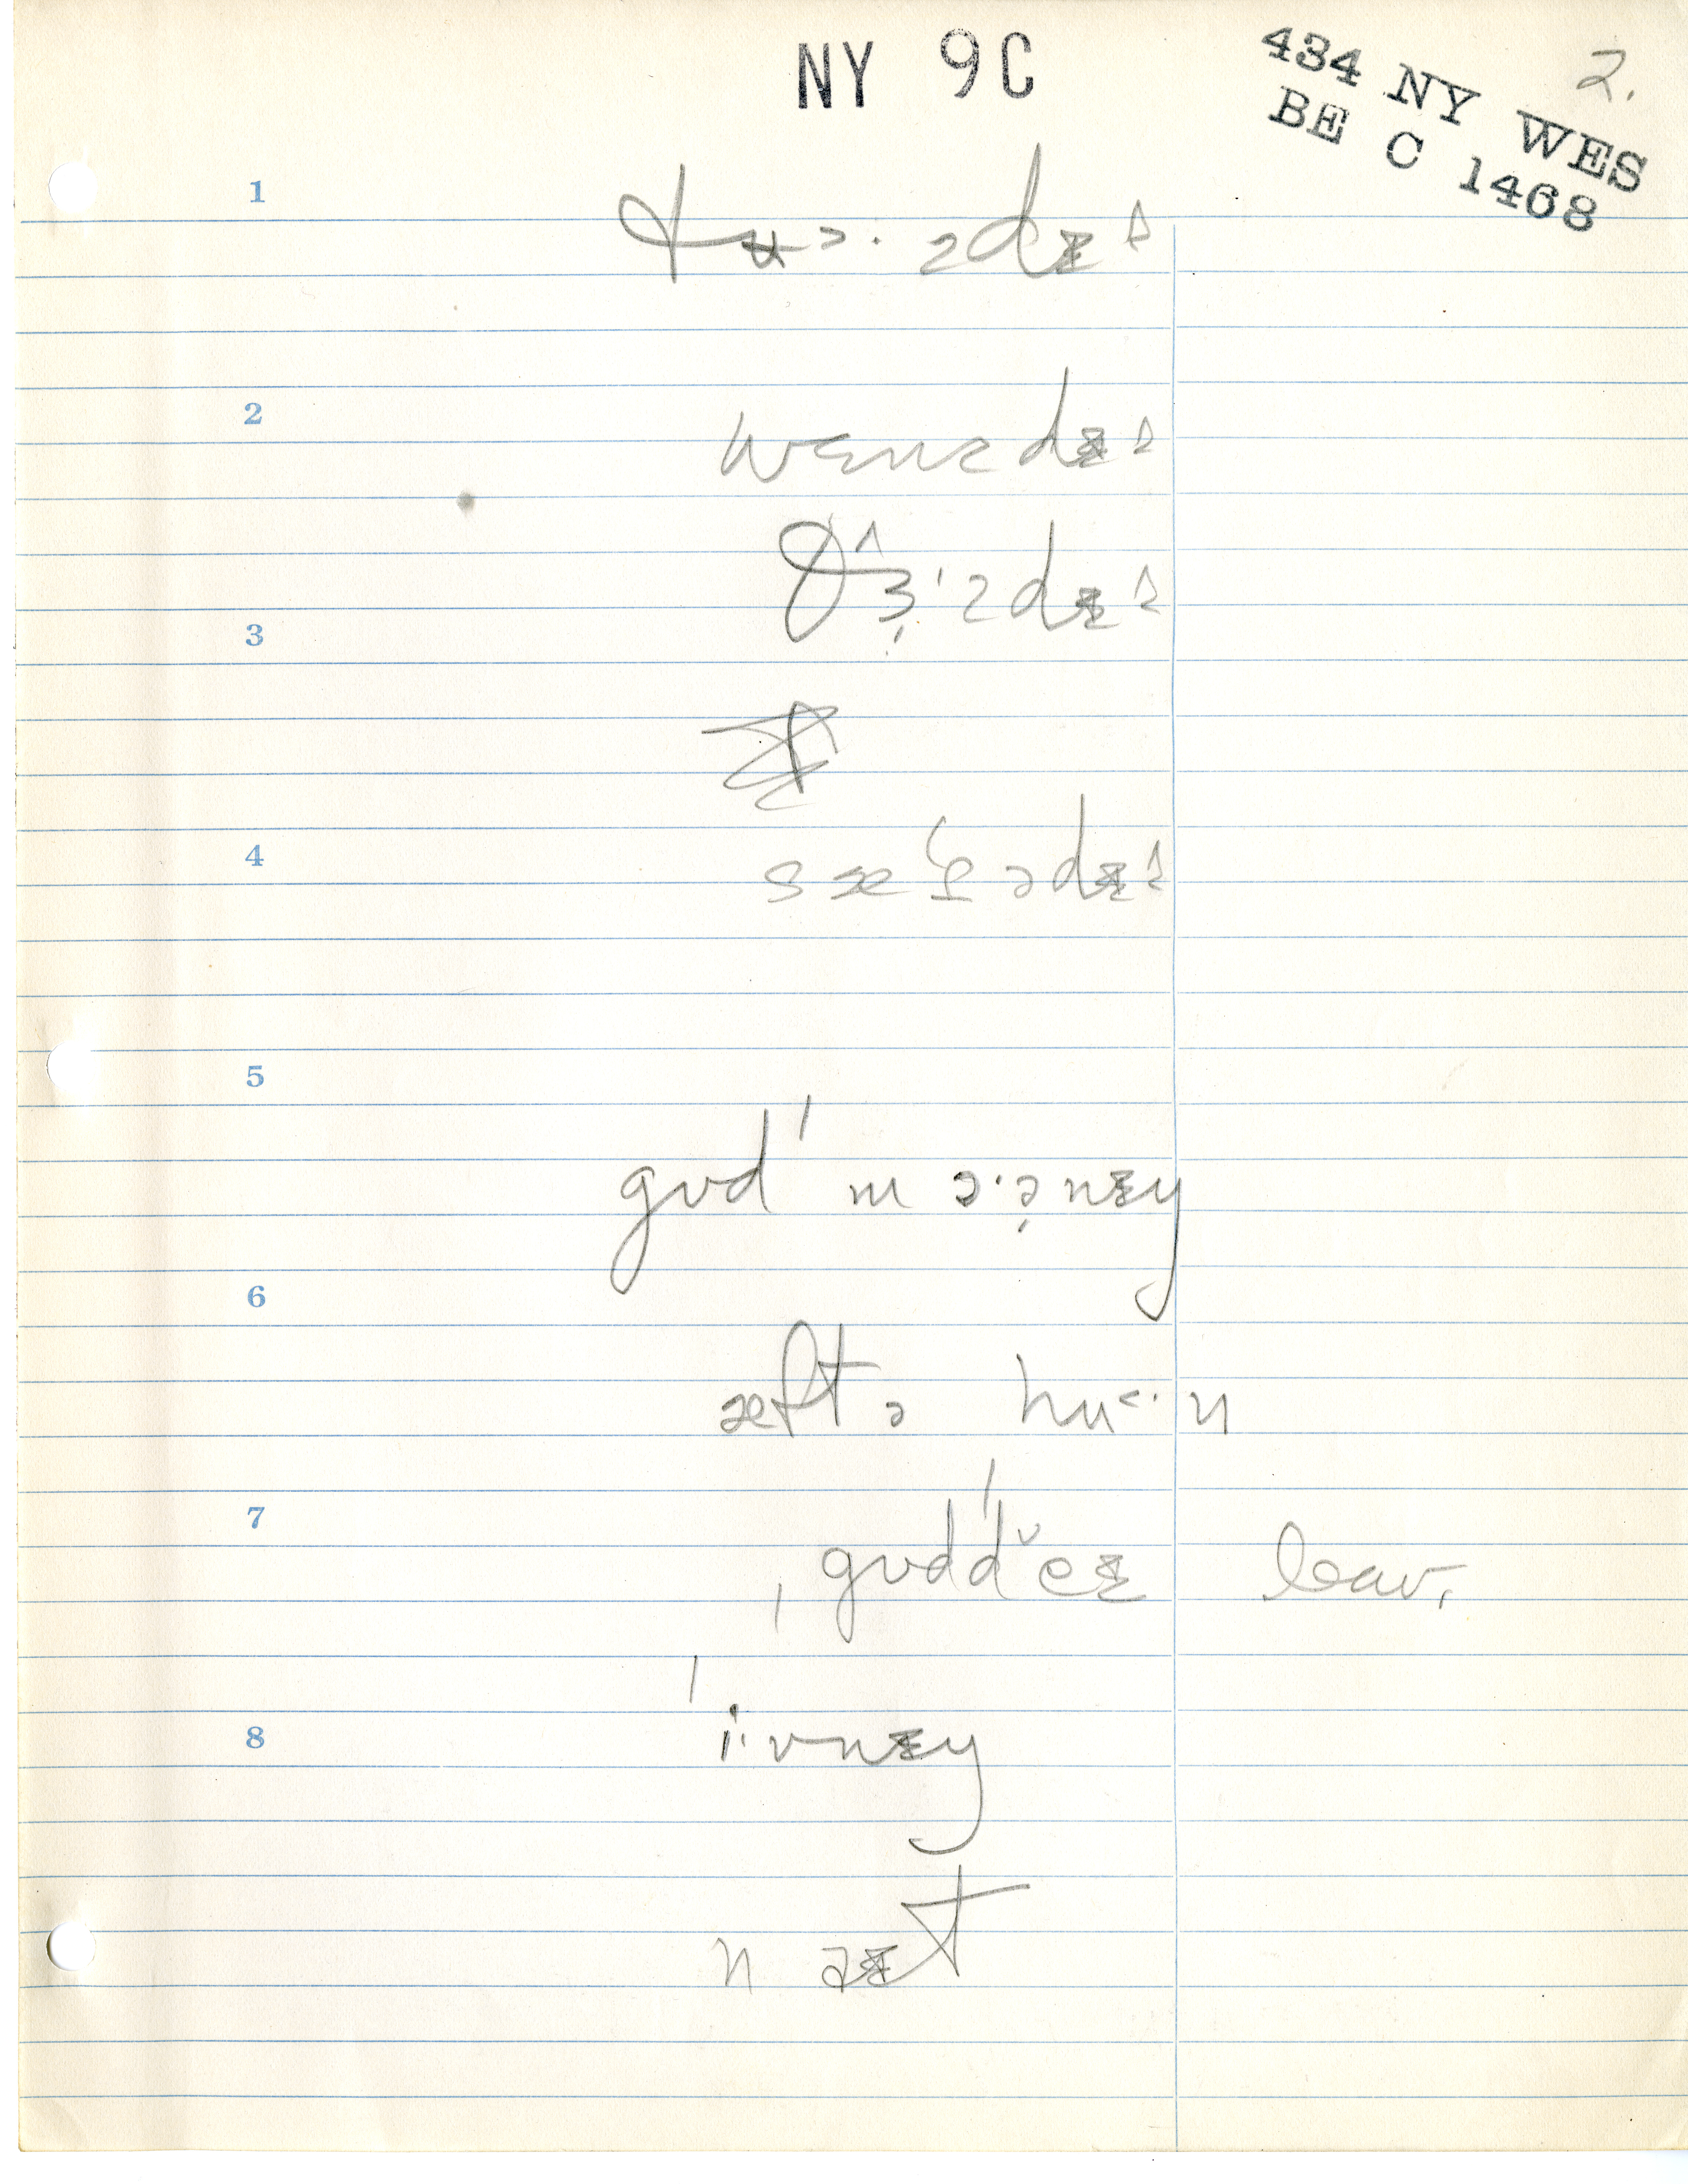 NY 9C
434 NY WES
BE C 1468
2.
1
tʉ>·zdɪ^
2
wɛnzdɪ^
θɜ^'zdɪ^
3
4
sæt̬ədɪ^
5
gʊd 'mɔ·ə̣nɪŋ
6
æftə hu<·n
7
ˌgʊd'dˇeɪ leav,
'i·vnɪŋ
8
naɪt